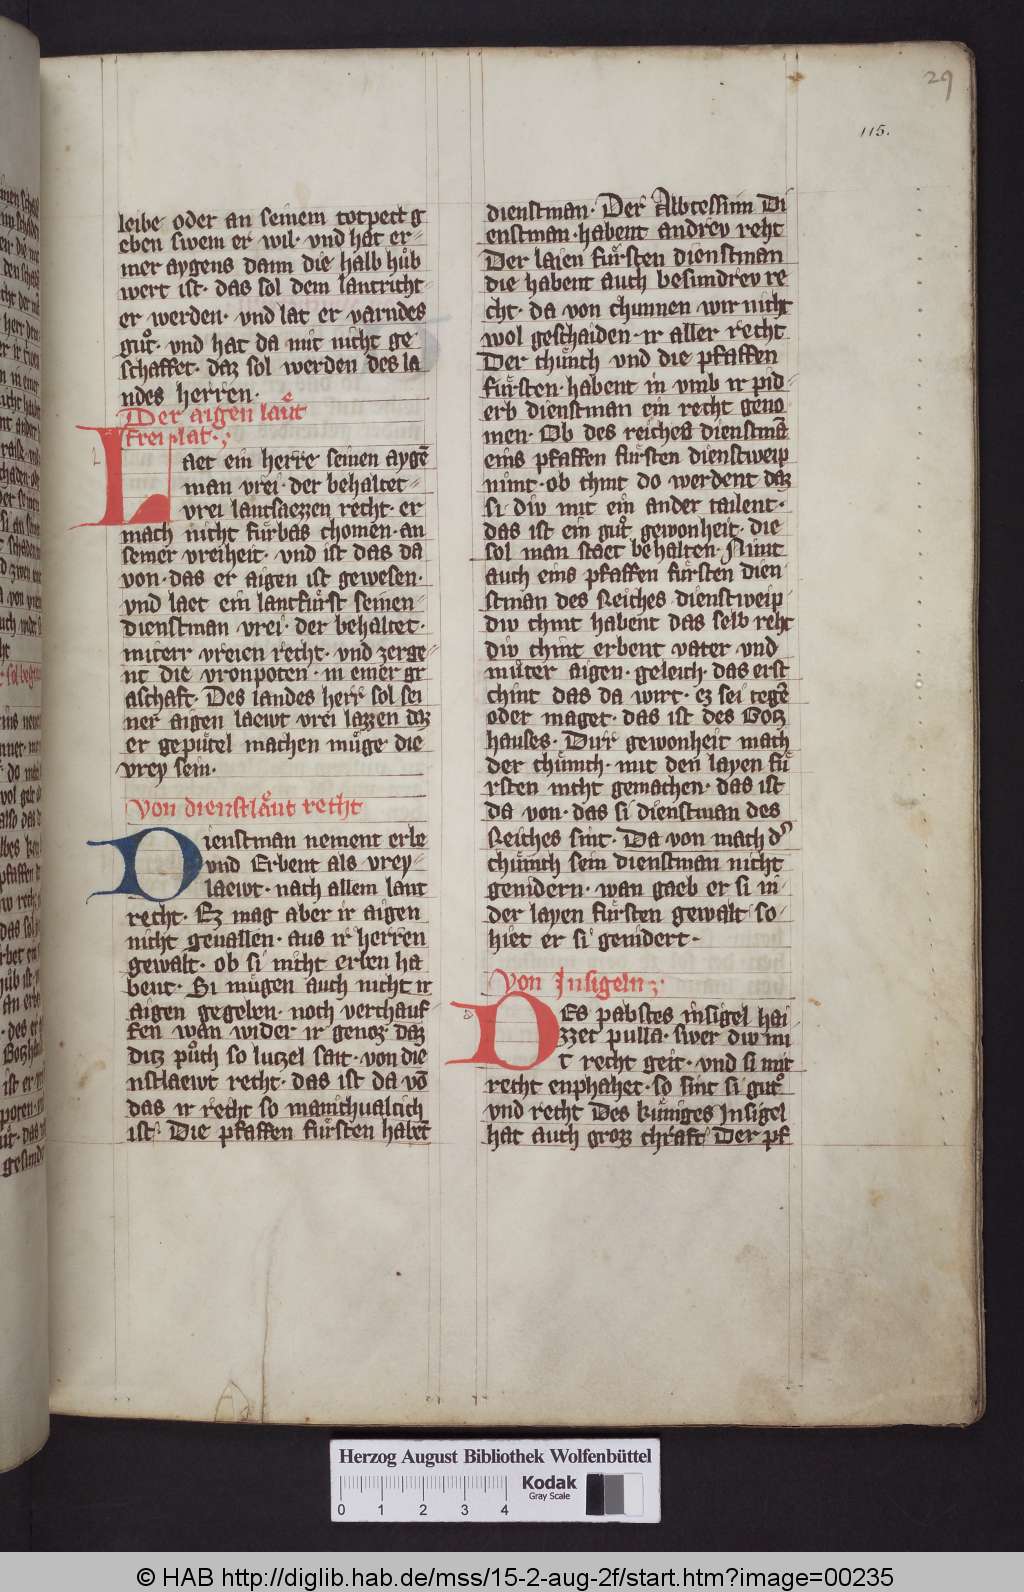 29
115.
leibe oder an seinem totpett g
eben swem er wil· vnd hat er-
mer aygens dann die halb hůb
wert ist· das sol dem lantricht
er werden· vnd lat er varndes
gůt· vnd hat da mit nicht ge
schaffet· daz sol werden des la
ndes herren·
Der aigen laůt
frei lat·
Laet ein herre seinen aygē
man vrei· der behaltet-
vrei lantsaezzen recht· er
mach nicht fürbas chomen· an
seiner vreiheit· vnd ist das da
von· das er aigen ist gewesen·
vnd laet ein lantfürst seinen
dienstman vrei· der behaltet·
miterr vreien recht· vnd zerge
nt die vronpoten· in einer gr
aschaft· Des landes herr sol sei
ner aigen laewt vrei lazzen daz
er gepütel machen müge die
vrey sein·
Von dienstlaüt recht
Dienstman nement erbe
vnd Erbent als vrey-
laewt· nach allem lant
recht· Ez mag aber ir aigen
nicht geuallen· aus ir herren
gewalt· ob si nicht erben ha
bent· Si mügen auch nicht ir
aigen gegeben· noch verchauf
fen wan wider ir genoz daz
ditz půch so lutzel sait· von die
nstlaewt recht· das ist da vō
das ir recht so manichualtich
ist· Die pfaffen fürsten habēt
dienstman· Der Abtessinn Di
enstman· habent andrev reht
Der laien fürsten dienstman
die habent auch besundrev re
cht· da von chunnen wir nicht
wol geschaiden· ir aller recht
Der chünch vnd die pfaffen
fürsten· habent in vmb ir pid
erb dienstman ein recht geno
men· Ob des reiches dienstmā
eins pfaffen fürsten dienstweip
nimt· ob chint do werdent daz
si div mit ein ander tailent·
das ist ein gůt gewonheit· die
sol man staet behalten· Nimt
auch eins pfaffen fürsten dien
stman des Reiches dienstweip
div chint habent das selb reht
div chint erbent vater vnd
můter aigen· geleich· das erst
chint das da wirt· ez sei tegē
oder maget· das ist des Gotz
hauses· Dirr gewonheit mach
der chünich· mit den layen fü
rsten nicht gemachen· das ist
da von· das si dienstman des
Reiches sint· Da von mach d᾽
chünich sein dienstman nicht
genidern· wan gaeb er si in
der layen fürsten gewalt so
hiet er si genidert·
Von Insigeln
DEs pabstes insigel hai
zzet pulla· swer div mi
t recht geit· vnd si mit
recht enphahet· so sint si gůt
vnd recht Des küniges Insigel
hat auch grozz chraft Der pf
Herzog August Bibliothek Wolfenbüttel
0 1 2 3 4
Kodak
Gray Scale
© HAB http://diglib.hab.de/mss/15-2-aug-2f/start.htm?image=00235